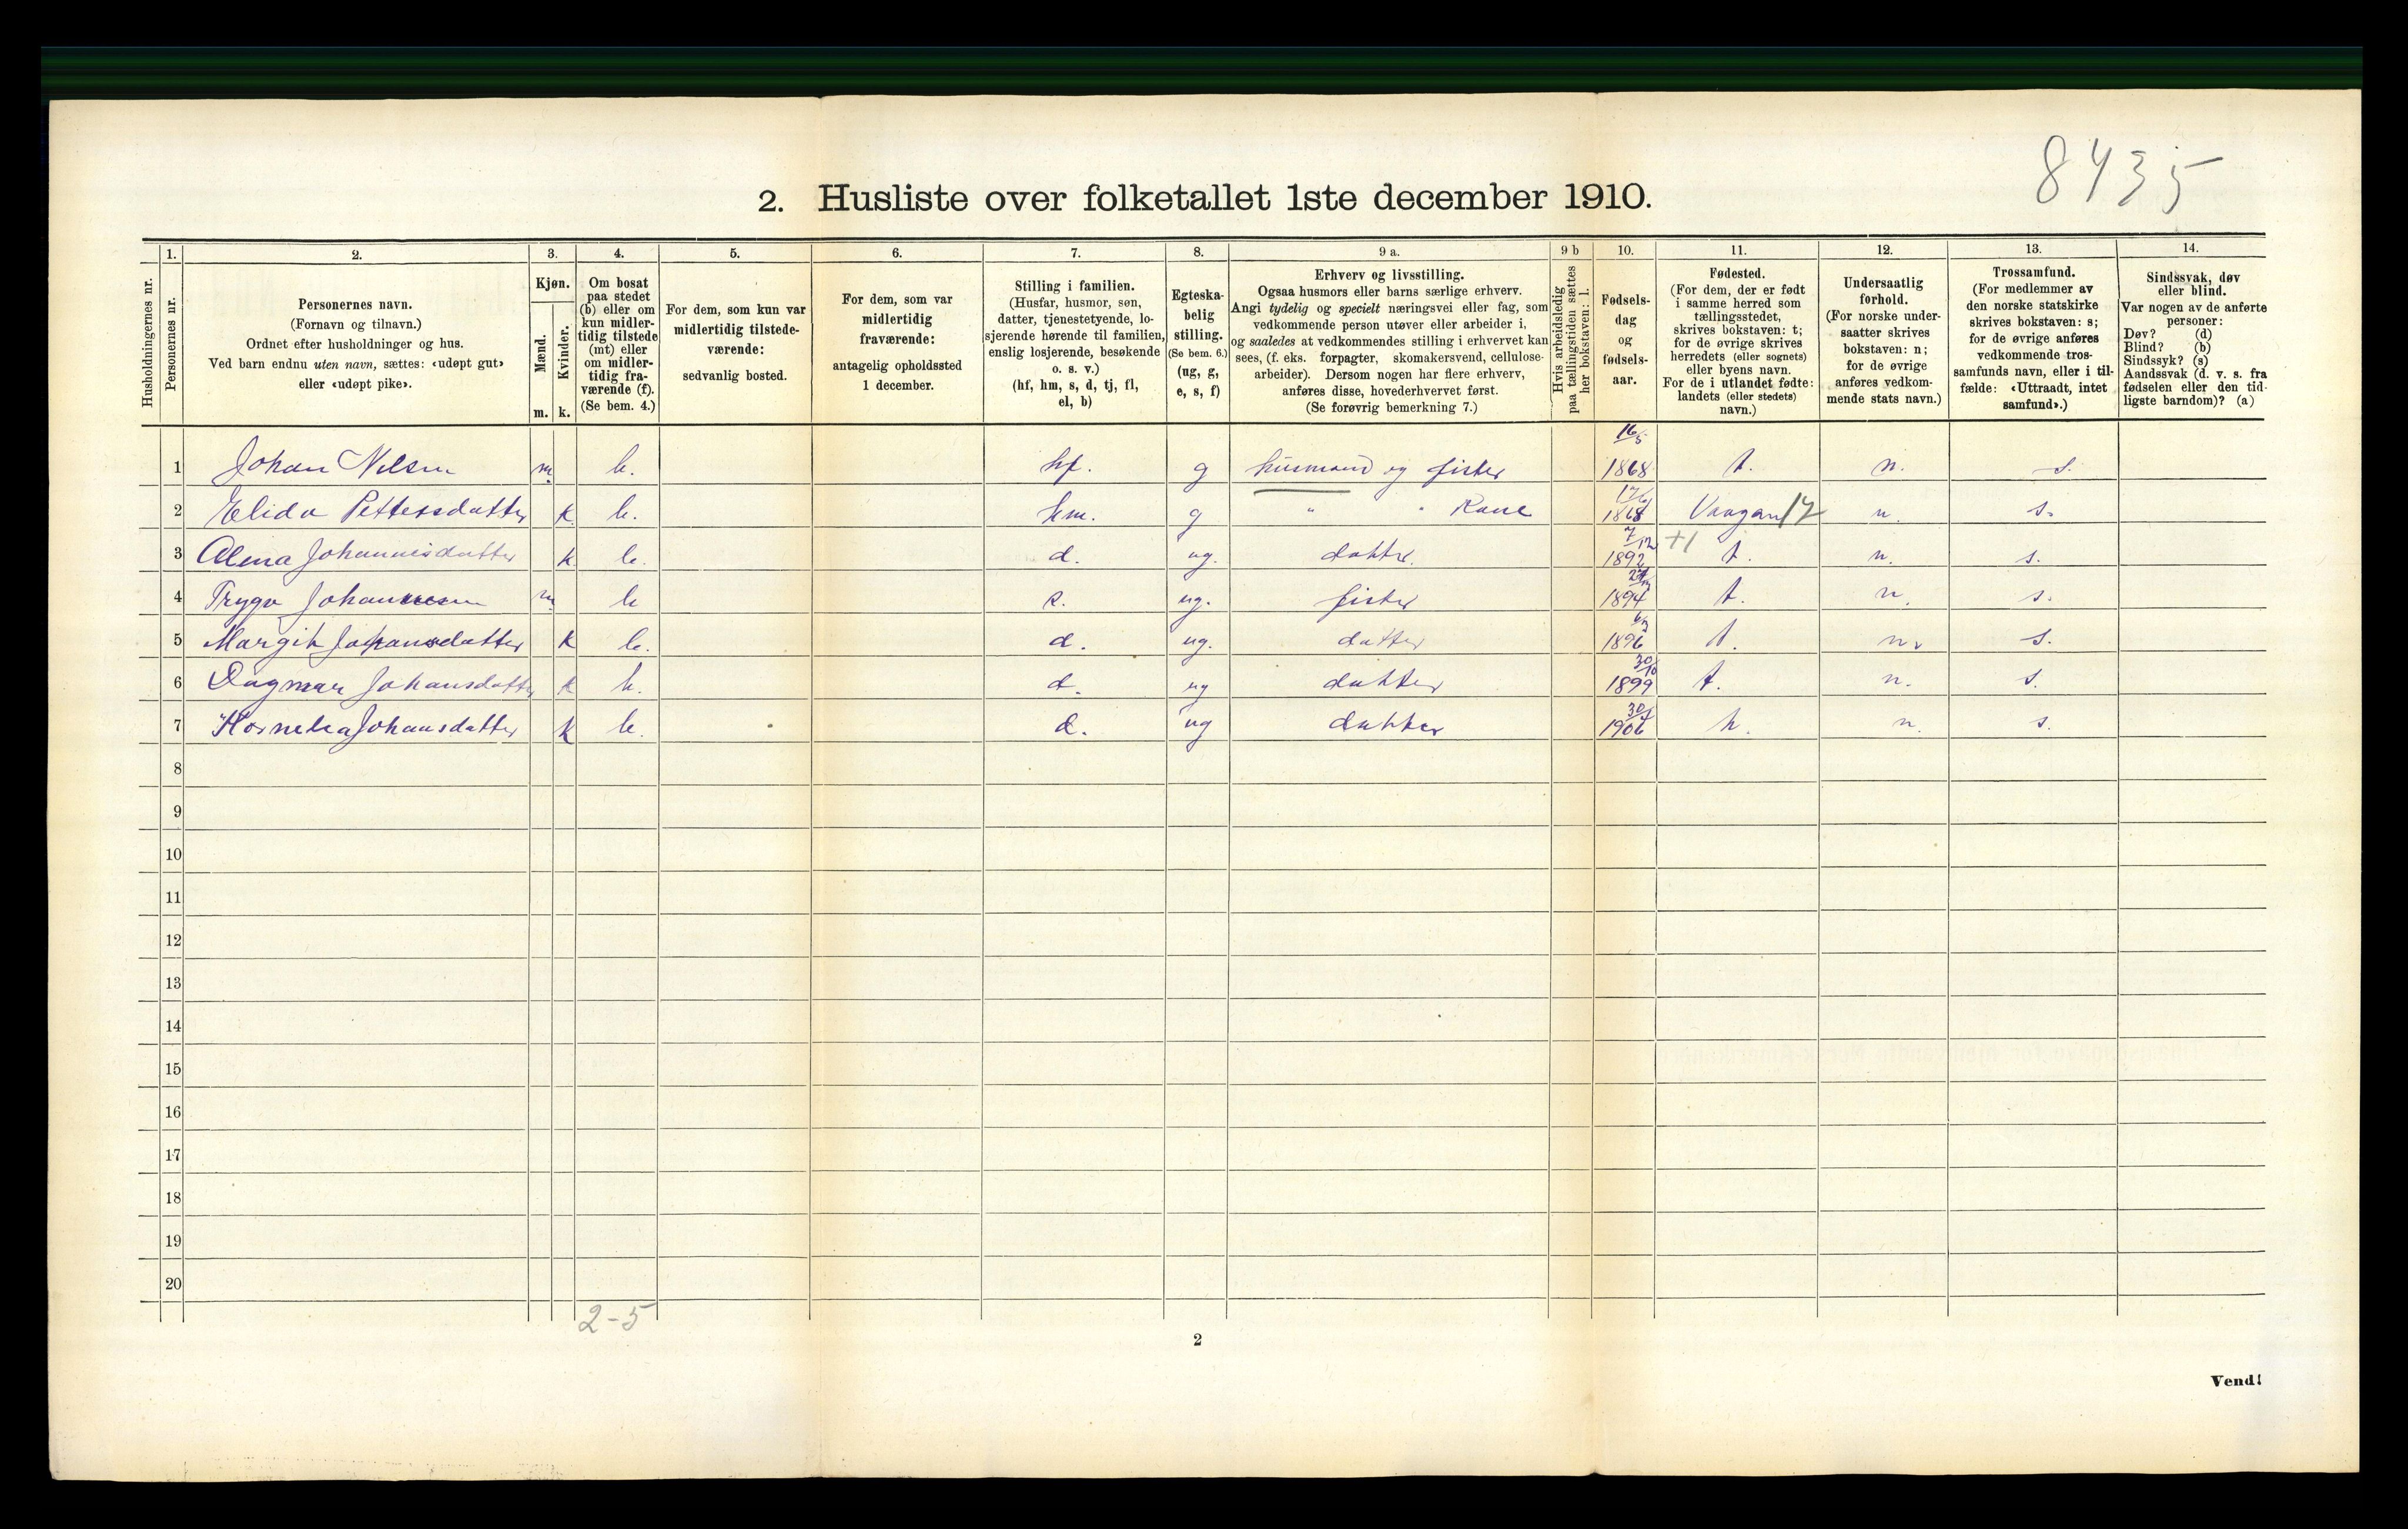 8435
2. Husliste over folketallet 1ste december 1910.
1. 2. 3. 4. 5. 6. 7. 8. 9 a. 9 b 10. 11. 12. 13. 14.
Husholdningernes nr.
Personernes nr.
Personernes navn.
(Fornavn og tilnavn.)
Ordnet efter husholdninger og hus.
Ved barn endnu uten navn, sættes: «udøpt gut»
eller «udøpt pike».
Kjøn.
Mænd.
Kvinder.
m. k.
Om bosat
paa stedet
(b) eller om
kun midler-
tidig tilstede
(mt) eller
om midler-
tidig fra-
værende (f).
(Se bem. 4.)
For dem, som kun var
midlertidig tilstede-
værende:
sedvanlig bosted.
For dem, som var
midlertidig
fraværende:
antagelig opholdssted
1 december.
Stilling i familien.
(Husfar, husmor, søn,
datter, tjenestetyende, lo-
sjerende hørende til familien,
enslig losjerende, besøkende
o. s. v.)
(hf, hm, s, d, tj, fl,
el, b)
Egteska-
belig
stilling.
(Se bem. 6.)
(ug, g,
e, s, f)
Erhverv og livsstilling.
Ogsaa husmors eller barns særlige erhverv.
Angi tydelig og specielt næringsvei eller fag, som
vedkommende person utøver eller arbeider i,
og saaledes at vedkommendes stilling i erhvervet kan
sees, (f. eks. forpagter, skomakersvend, cellulose-
arbeider). Dersom nogen har flere erhverv,
anføres disse, hovederhvervet først.
(Se forøvrig bemerkning 7.)
Hvis arbeidsledig
paa tællingstiden sættes
her bokstaven: l.
Fødsels-
dag
og
fødsels-
aar.
Fødested.
(For dem, der er født
i samme herred som
tællingsstedet,
skrives bokstaven: t;
for de øvrige skrives
herredets (eller sognets)
eller byens navn.
For de i utlandet fødte:
landets (eller stedets)
navn.)
Undersaatlig
forhold.
(For norske under-
saatter skrives
bokstaven: n;
for de øvrige
anføres vedkom-
mende stats navn.)
Trossamfund.
(For medlemmer av
den norske statskirke
skrives bokstaven: s;
for de øvrige anføres
vedkommende tros-
samfunds navn, eller i til-
fælde: «Uttraadt, intet
samfund».)
Sindssvak, døv
eller blind.
Var nogen av de anførte
personer:
Døv? (d)
Blind? (b)
Sindssyk? (s)
Aandssvak (d. v. s. fra
fødselen eller den tid-
ligste barndom)? (a)
1 Johan Nilsen m. b. hf. g husmand og fisker 16/5 1868 t. n. s.
2 Elida Pettersdatter k b. hm. g " " Kone 17/6 1868 Vaagan 17 n. s.
3 Alma Johannesdatter k b. d. ug. datter 7/12 1892 +1 t. n. s.
4 Trygv m b s. ug. fisker 1894 t. n. s.
5 Margit Johansdatter k b. d. ug. datter 1896 t. n. s.
6 Dagmar Johansdatter k b. d. ug datter 30/10 1899 t. n. s.
7 Kornelia Johansdatter k b. d. ug datter 1906 n. s.
8
9
10
11
12
13
14
15
16
17
18
19
20
2-5
2
Vend!